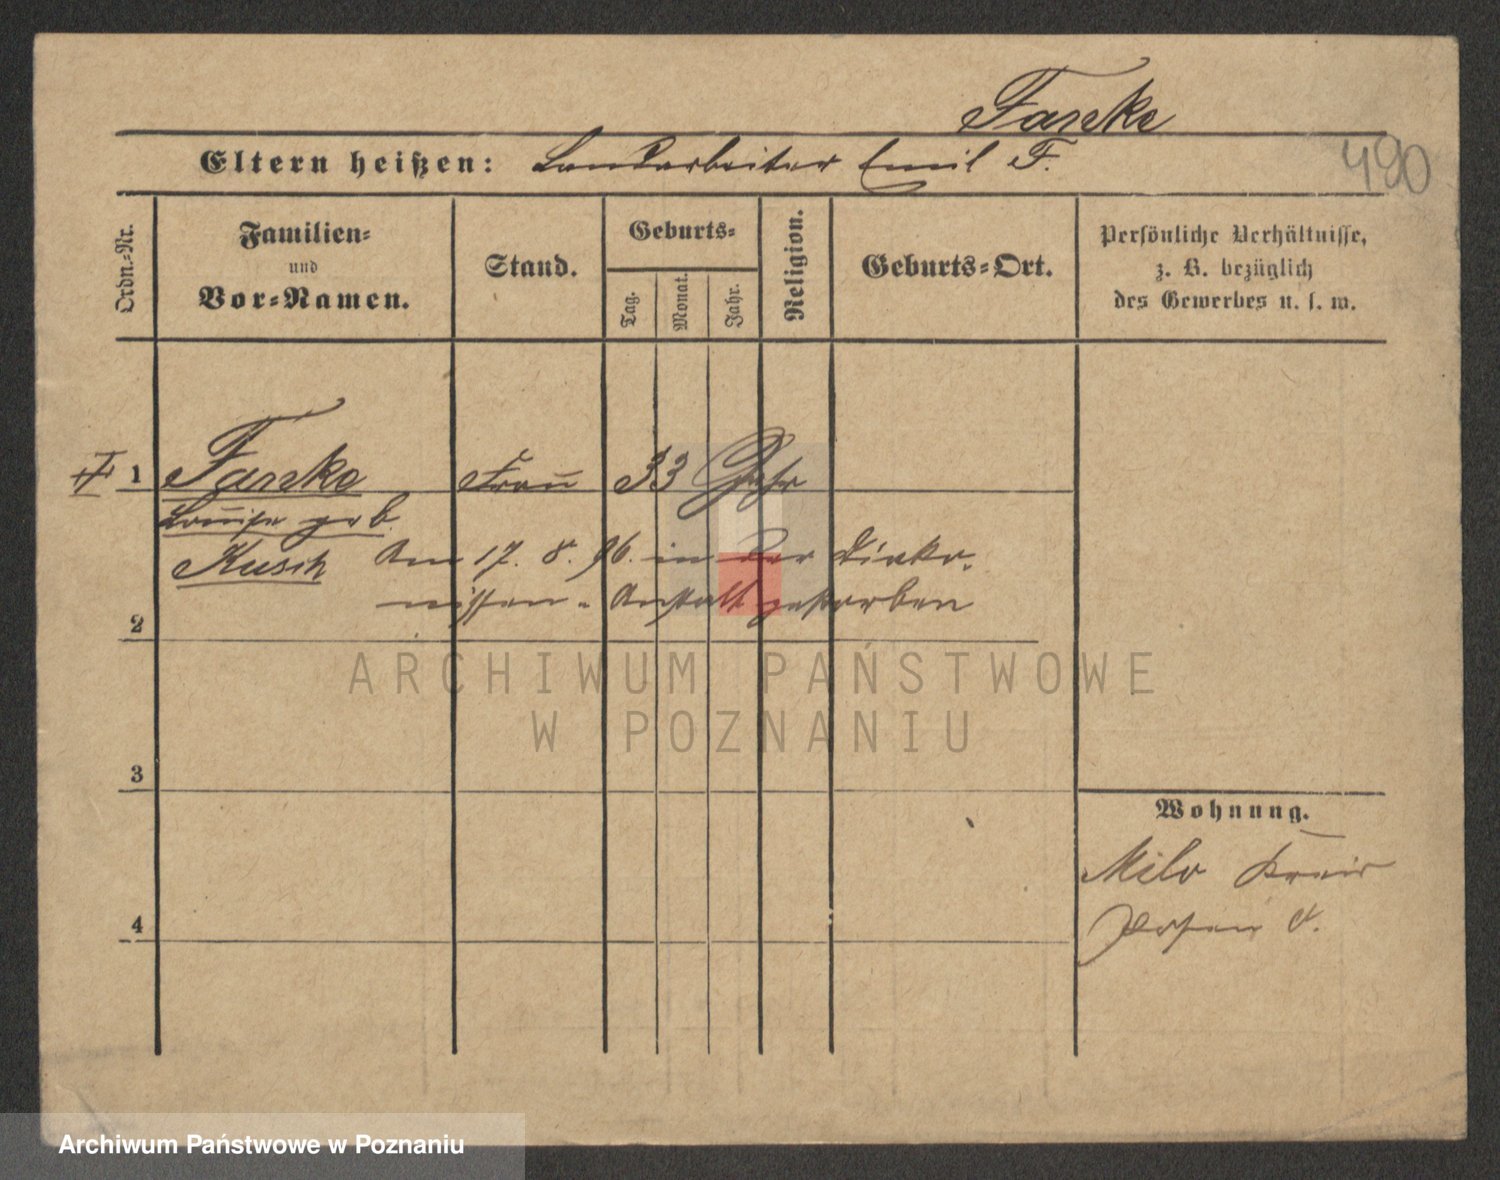 Fanske
490
Eltern heißen: Landarbeiter Emil F.
Ordn.-Nr.
Familien-
und
Vor-Namen.
Stand.
Geburts-
Tag.
Monat.
Jahr.
Religion.
Geburts-Ort.
Persönliche Verhältnisse,
z. B. bezüglich
des Gewerbes u. s. w.
1 Fanske Frau 33 Jahr
Louise geb.
Kusch Am 17. 8. 96. in der Diako-
nissen-Anstalt gestorben
2
ARCHIWUM PAŃSTWOWE
W POZNANIU
3
Wohnung.
Milo Kreis
Posen O.
4
Archiwum Państwowe w Poznaniu